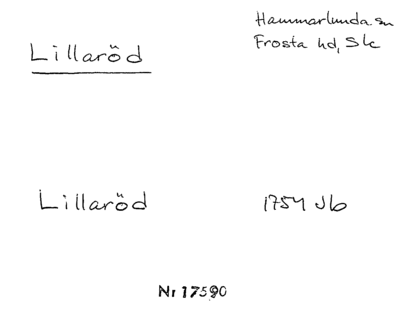 Lillaröd
Hammarlunda sn
Frosta hd, Sk
Lillaröd 1754 Jb
Nr 17590